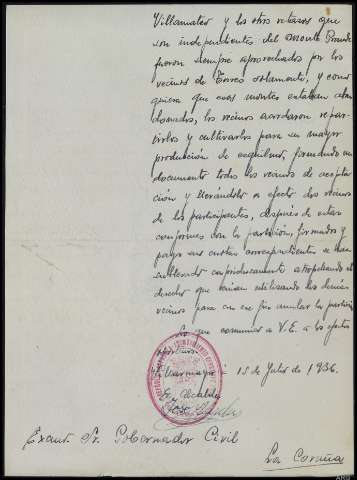 Villamateo y los otros retazos que
son independientes del Monte Grande
fueron siempre aprovechados por los
vecinos de Torres solamente, y como
quiera que esos montes estaban aban
donados, los vecinos acordaron repar-
tirlos y cultivarlos para su mayor
producción de esquilmo, formando un
documento todos los vecinos de acepta
ción y llevándolo a efecto dos vecinos
de los participantes, después de estar
conformes con la partición, firmados y
pago sus cuotas correspondientes se han
el
derecho que venían utilizando los demás
vecinos para con ese fin anular la partición
Lo que comunico a V.E. a los efectos
oportunos.
Villarmayor 15 de Julio de 1936.
El Alcalde
José
Excmo. Sr. Gobernador Civil
La Coruña